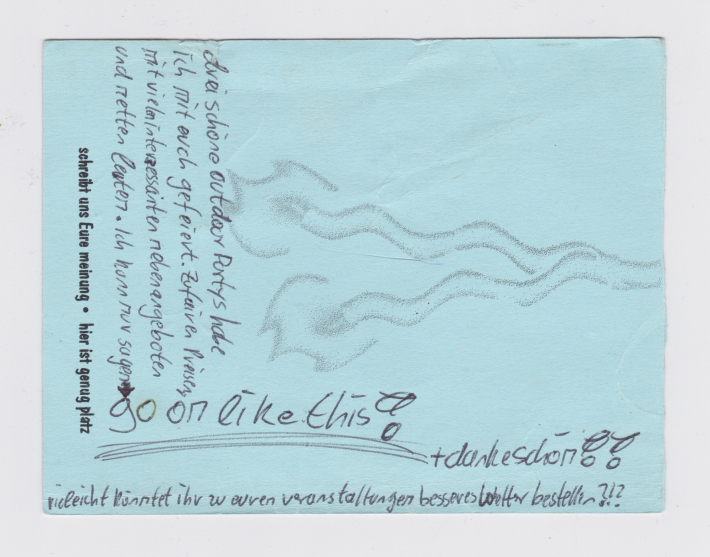 drei schöne outdoor Partys habe
ich mit euch gefeiert. Zu fairen Preisen,
mit vielen interessanten nebenangeboten
und netten leuten. Ich kann nur sagen
schreibt uns Eure meinung • hier ist genug platz
go on like this!
+dankeschön!!
vieleicht könntet ihr zu euren veranstaltungen besseres Wetter bestellen?!?